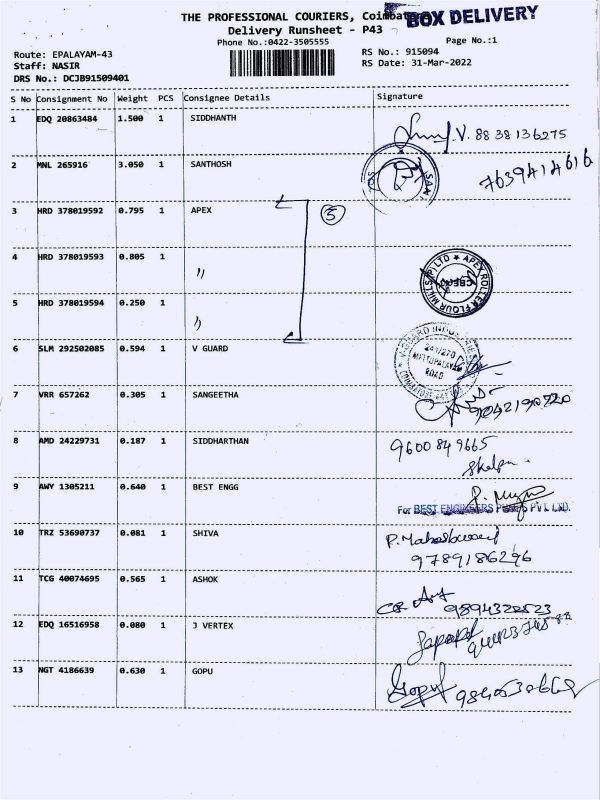 THE PROFESSIONAL COURIERS, Coimbatore
BOX DELIVERY
Delivery Runsheet - P43
Phone No.:0422-3505555
Page No.:1
Route: EPALAYAM-43
RS No.: 915094
Staff: NASIR
RS Date: 31-Mar-2022
DRS No.: DCJB91509401
S No Consignment No Weight PCS Consignee Details Signature
1 EDQ 20863484 1.500 1 SIDDHANTH V. 8838136275
2 MNL 265916 3.050 1 SANTHOSH 7639414616
3 HRD 378019592 0.795 1 APEX 5
4 HRD 378019593 0.805 1 " APEX ROLLER FLOUR MILLS (P) LTD
5 HRD 378019594 0.250 1 "
6 SLM 292502085 0.594 1 V GUARD V-GUARD INDUSTRIES METTUPALAYAM ROAD
7 VRR 657262 0.305 1 SANGEETHA 9042190720
8 AMD 24229731 0.187 1 SIDDHARTHAN 9600849665
9 AWY 1305211 0.640 1 BEST ENGG
For BEST ENGINEERS PUMPS PVT. LTD.
10 TRZ 53690737 0.081 1 SHIVA P. Maheshwari
9789186296
11 TCG 40074695 0.565 1 ASHOK 9894322523
12 EDQ 16516958 0.080 1 J VERTEX
13 NGT 4186639 0.630 1 GOPU Gopu